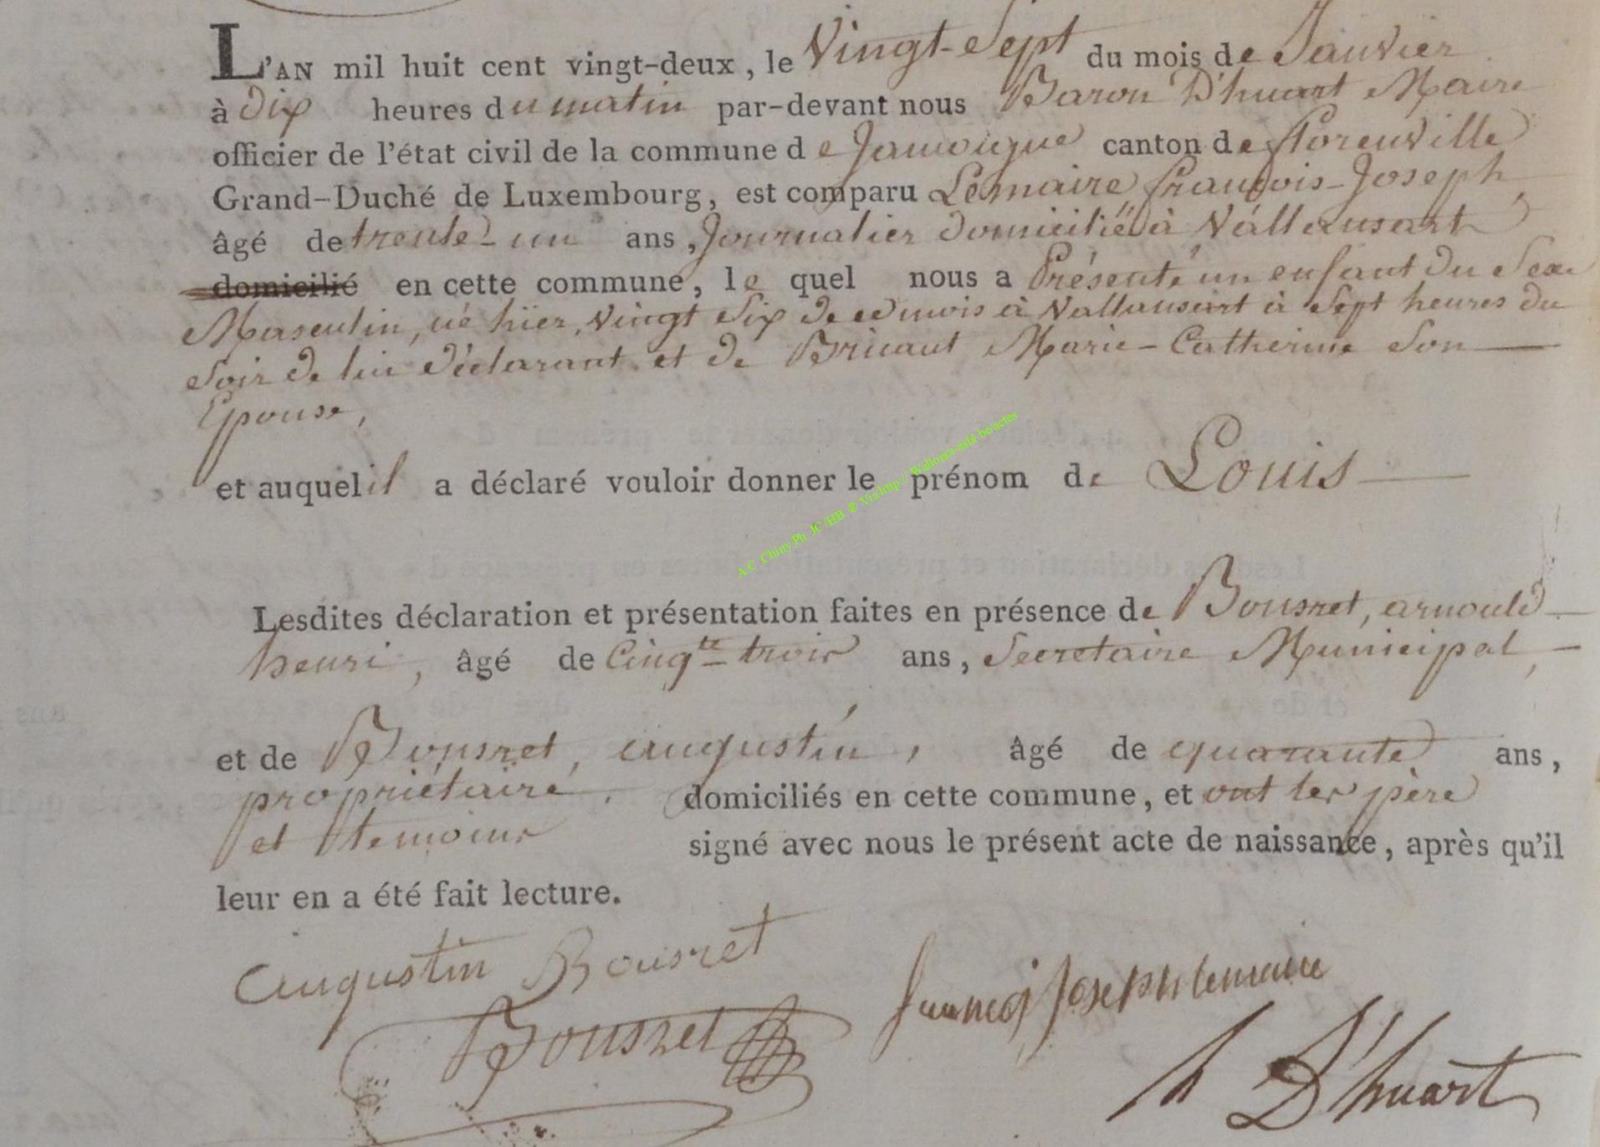 L'AN mil huit cent vingt-deux, le Vingt-Sept du mois de Janvier
à Dix heures du matin par-devant nous Baron D'huart Maire
officier de l'état civil de la commune de Jamoigne canton de florenville
Grand-Duché de Luxembourg, est comparu Lemaire, françois-Joseph,
âgé de trente-un ans, Journalier domicilié à Vallansart
domicilié en cette commune, le quel nous a Présenté un enfant du Sexe
Masculin, né hier, Vingt Six de ce mois à Vallansart à Sept heures du
Soir de lui déclarant et de Bricaut Marie-Catherine Son
Epouse,
et auquel il a déclaré vouloir donner le prénom de Louis
A.C. Chiny Ph. JC/HB
Lesdites déclaration et présentation faites en présence de Bousret, arnould
henri, âgé de Cinqte trois ans, Secretaire Municipal,
et de Bousret, augustin, âgé de quarante ans,
propriétaire, domiciliés en cette commune, et ont les père
et temoins signé avec nous le présent acte de naissance, après qu'il
leur en a été fait lecture.
augustin Bousret
françois Joseph lemaire
Bousret
D'huart